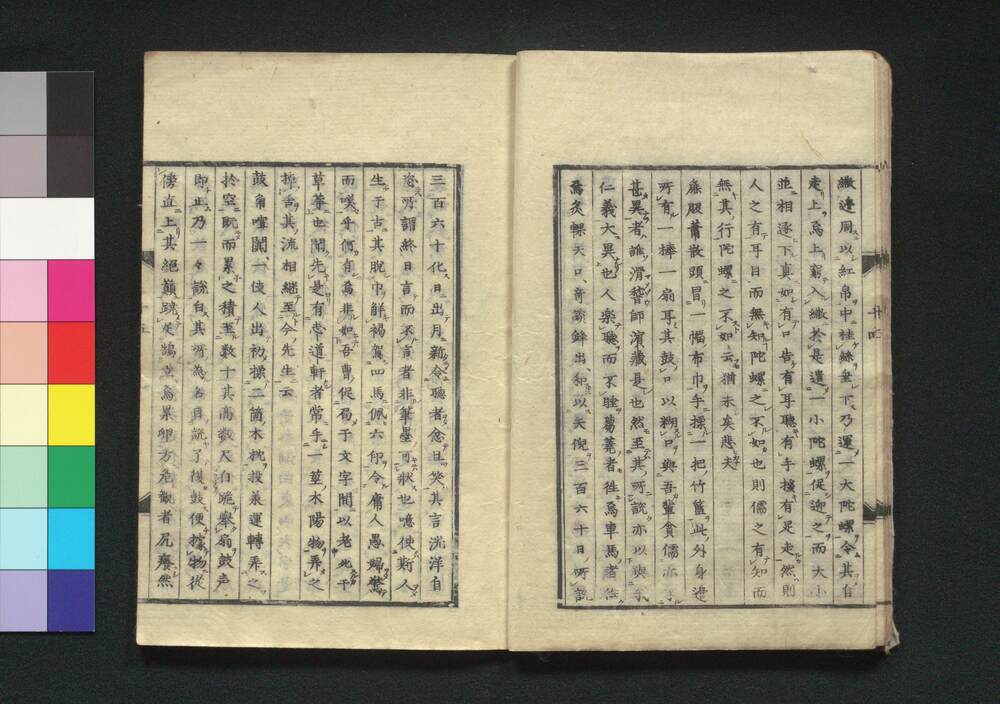 繖邊周以紅帛中挂絲垂下乃運一大陀螺令其自
走上爲上窮入繖於是遣一小陀螺促迎之而大小
並相逐下真如有口告有耳聽有手擴有足走然則
人之有耳目而無知陀螺之不如也則儒之有知而
無其行陀螺之不如云猶未矣悲夫
廉股蕭散頭冒一幅布巾手操一把竹籃此外身邊
所有一捧一扇耳其鼓口以糊口與吾輩貧儒
甚異者譙滑稽師濱藏是也然至其所説亦以與
仁義大異也人楽聽而不睡蒭蕘者徃爲車馬者
爲炙輠天口奇鋒出和以天倪三百六十日所説
三百六十化日出月新令聽者念旦笑其言洸洋自
恣所謂終日言而不言者非筆墨可状也噫使斯人
生于古其脱巾觧褐駕四馬佩六印令庸人愚婦驚
而嘆乎何自爲非如吾曹促局于文字間以老死于
草莽也聞先是有志道軒者常手一莖木陽物弄之
掉舌其流相継至今先生云
鼓角喧闐一使人出初操二箇木枕投承運轉弄之
於空既而累之積至数十其高数尺白跪舉扇鼓声
即止乃一々説白其所為名目説了後鼓便攄物從
傍直上其絕巔跳鵠立爲累卵方危觀者尻癢然
廿四